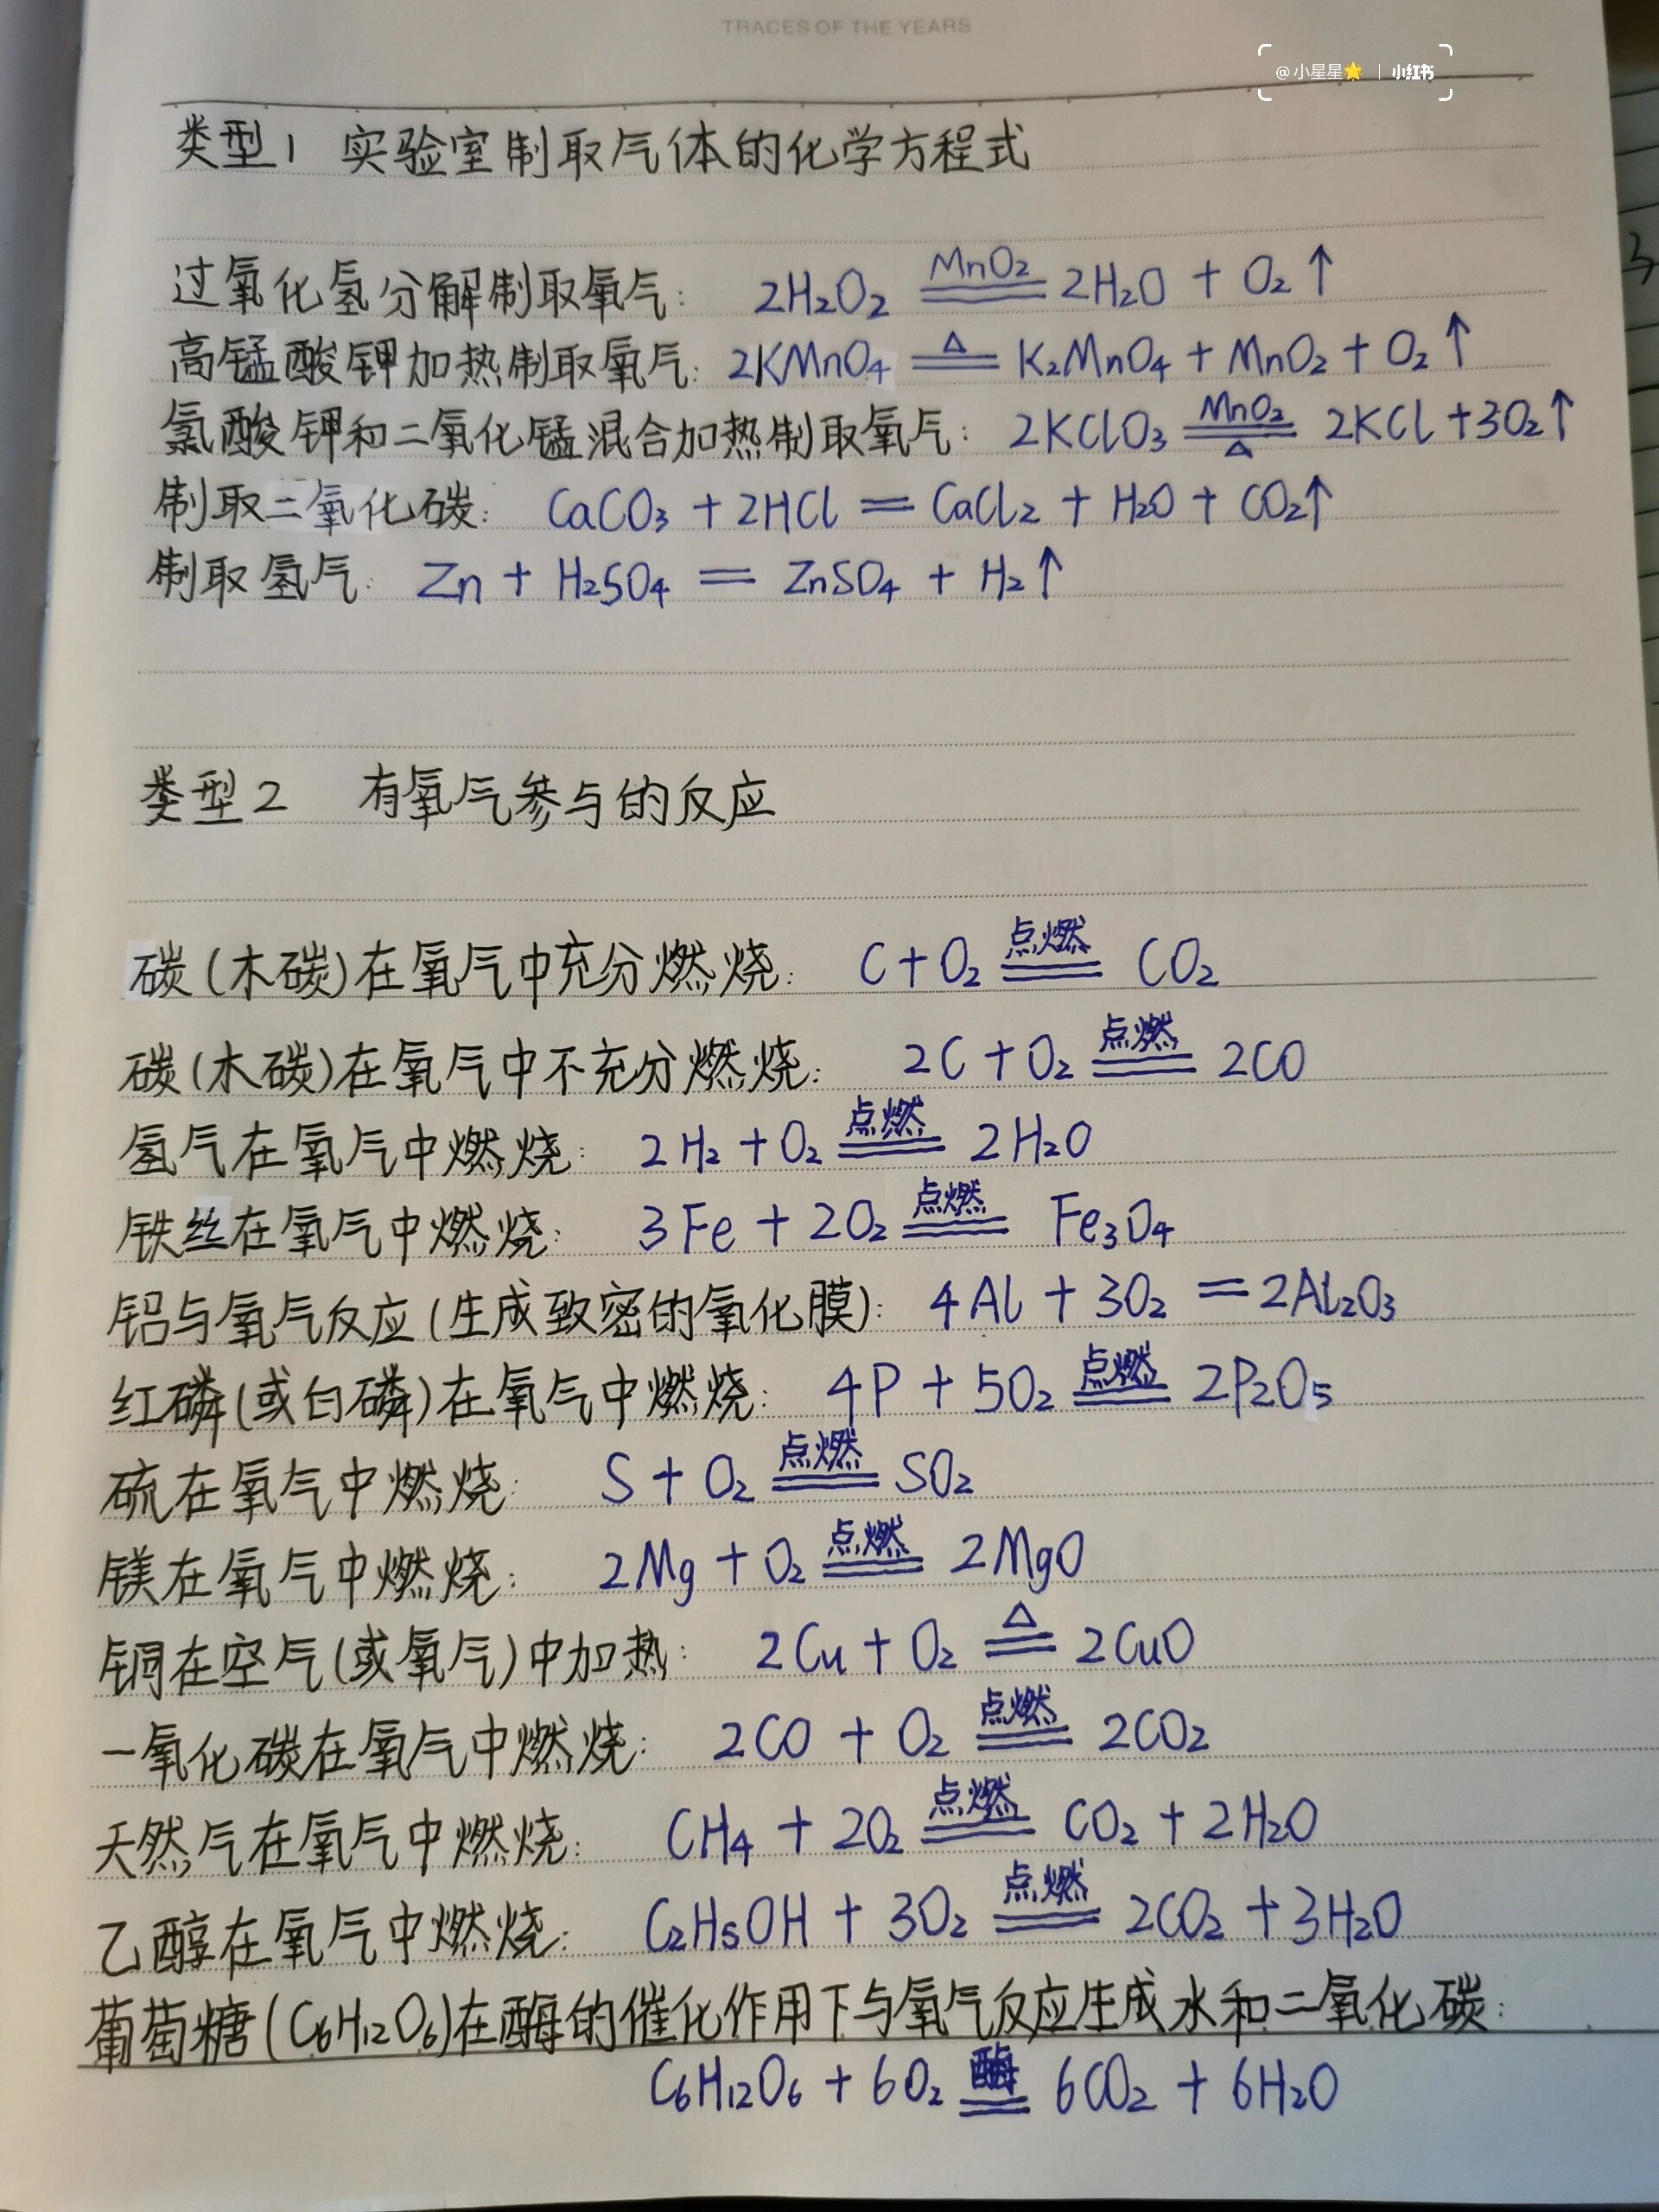 TRACES OF THE YEARS
@小星星🌟 | 小红书
类型1 实验室制取气体的化学方程式
过氧化氢分解制取氧气: 2H₂O₂ =MnO₂= 2H₂O + O₂↑
高锰酸钾加热制取氧气: 2KMnO₄ =△= K₂MnO₄ + MnO₂ + O₂↑
氯酸钾和二氧化锰混合加热制取氧气: 2KClO₃ =MnO₂/△= 2KCl + 3O₂↑
制取二氧化碳: CaCO₃ + 2HCl = CaCl₂ + H₂O + CO₂↑
制取氢气: Zn + H₂SO₄ = ZnSO₄ + H₂↑
类型2 有氧气参与的反应
碳(木碳)在氧气中充分燃烧: C + O₂ =点燃= CO₂
碳(木碳)在氧气中不充分燃烧: 2C + O₂ =点燃= 2CO
氢气在氧气中燃烧: 2H₂ + O₂ =点燃= 2H₂O
铁丝在氧气中燃烧: 3Fe + 2O₂ =点燃= Fe₃O₄
铝与氧气反应(生成致密的氧化膜): 4Al + 3O₂ = 2Al₂O₃
红磷(或白磷)在氧气中燃烧: 4P + 5O₂ =点燃= 2P₂O₅
硫在氧气中燃烧: S + O₂ =点燃= SO₂
镁在氧气中燃烧: 2Mg + O₂ =点燃= 2MgO
铜在空气(或氧气)中加热: 2Cu + O₂ =△= 2CuO
一氧化碳在氧气中燃烧: 2CO + O₂ =点燃= 2CO₂
天然气在氧气中燃烧: CH₄ + 2O₂ =点燃= CO₂ + 2H₂O
乙醇在氧气中燃烧: C₂H₅OH + 3O₂ =点燃= 2CO₂ + 3H₂O
葡萄糖(C₆H₁₂O₆)在酶的催化作用下与氧气反应生成水和二氧化碳:
C₆H₁₂O₆ + 6O₂ =酶= 6CO₂ + 6H₂O